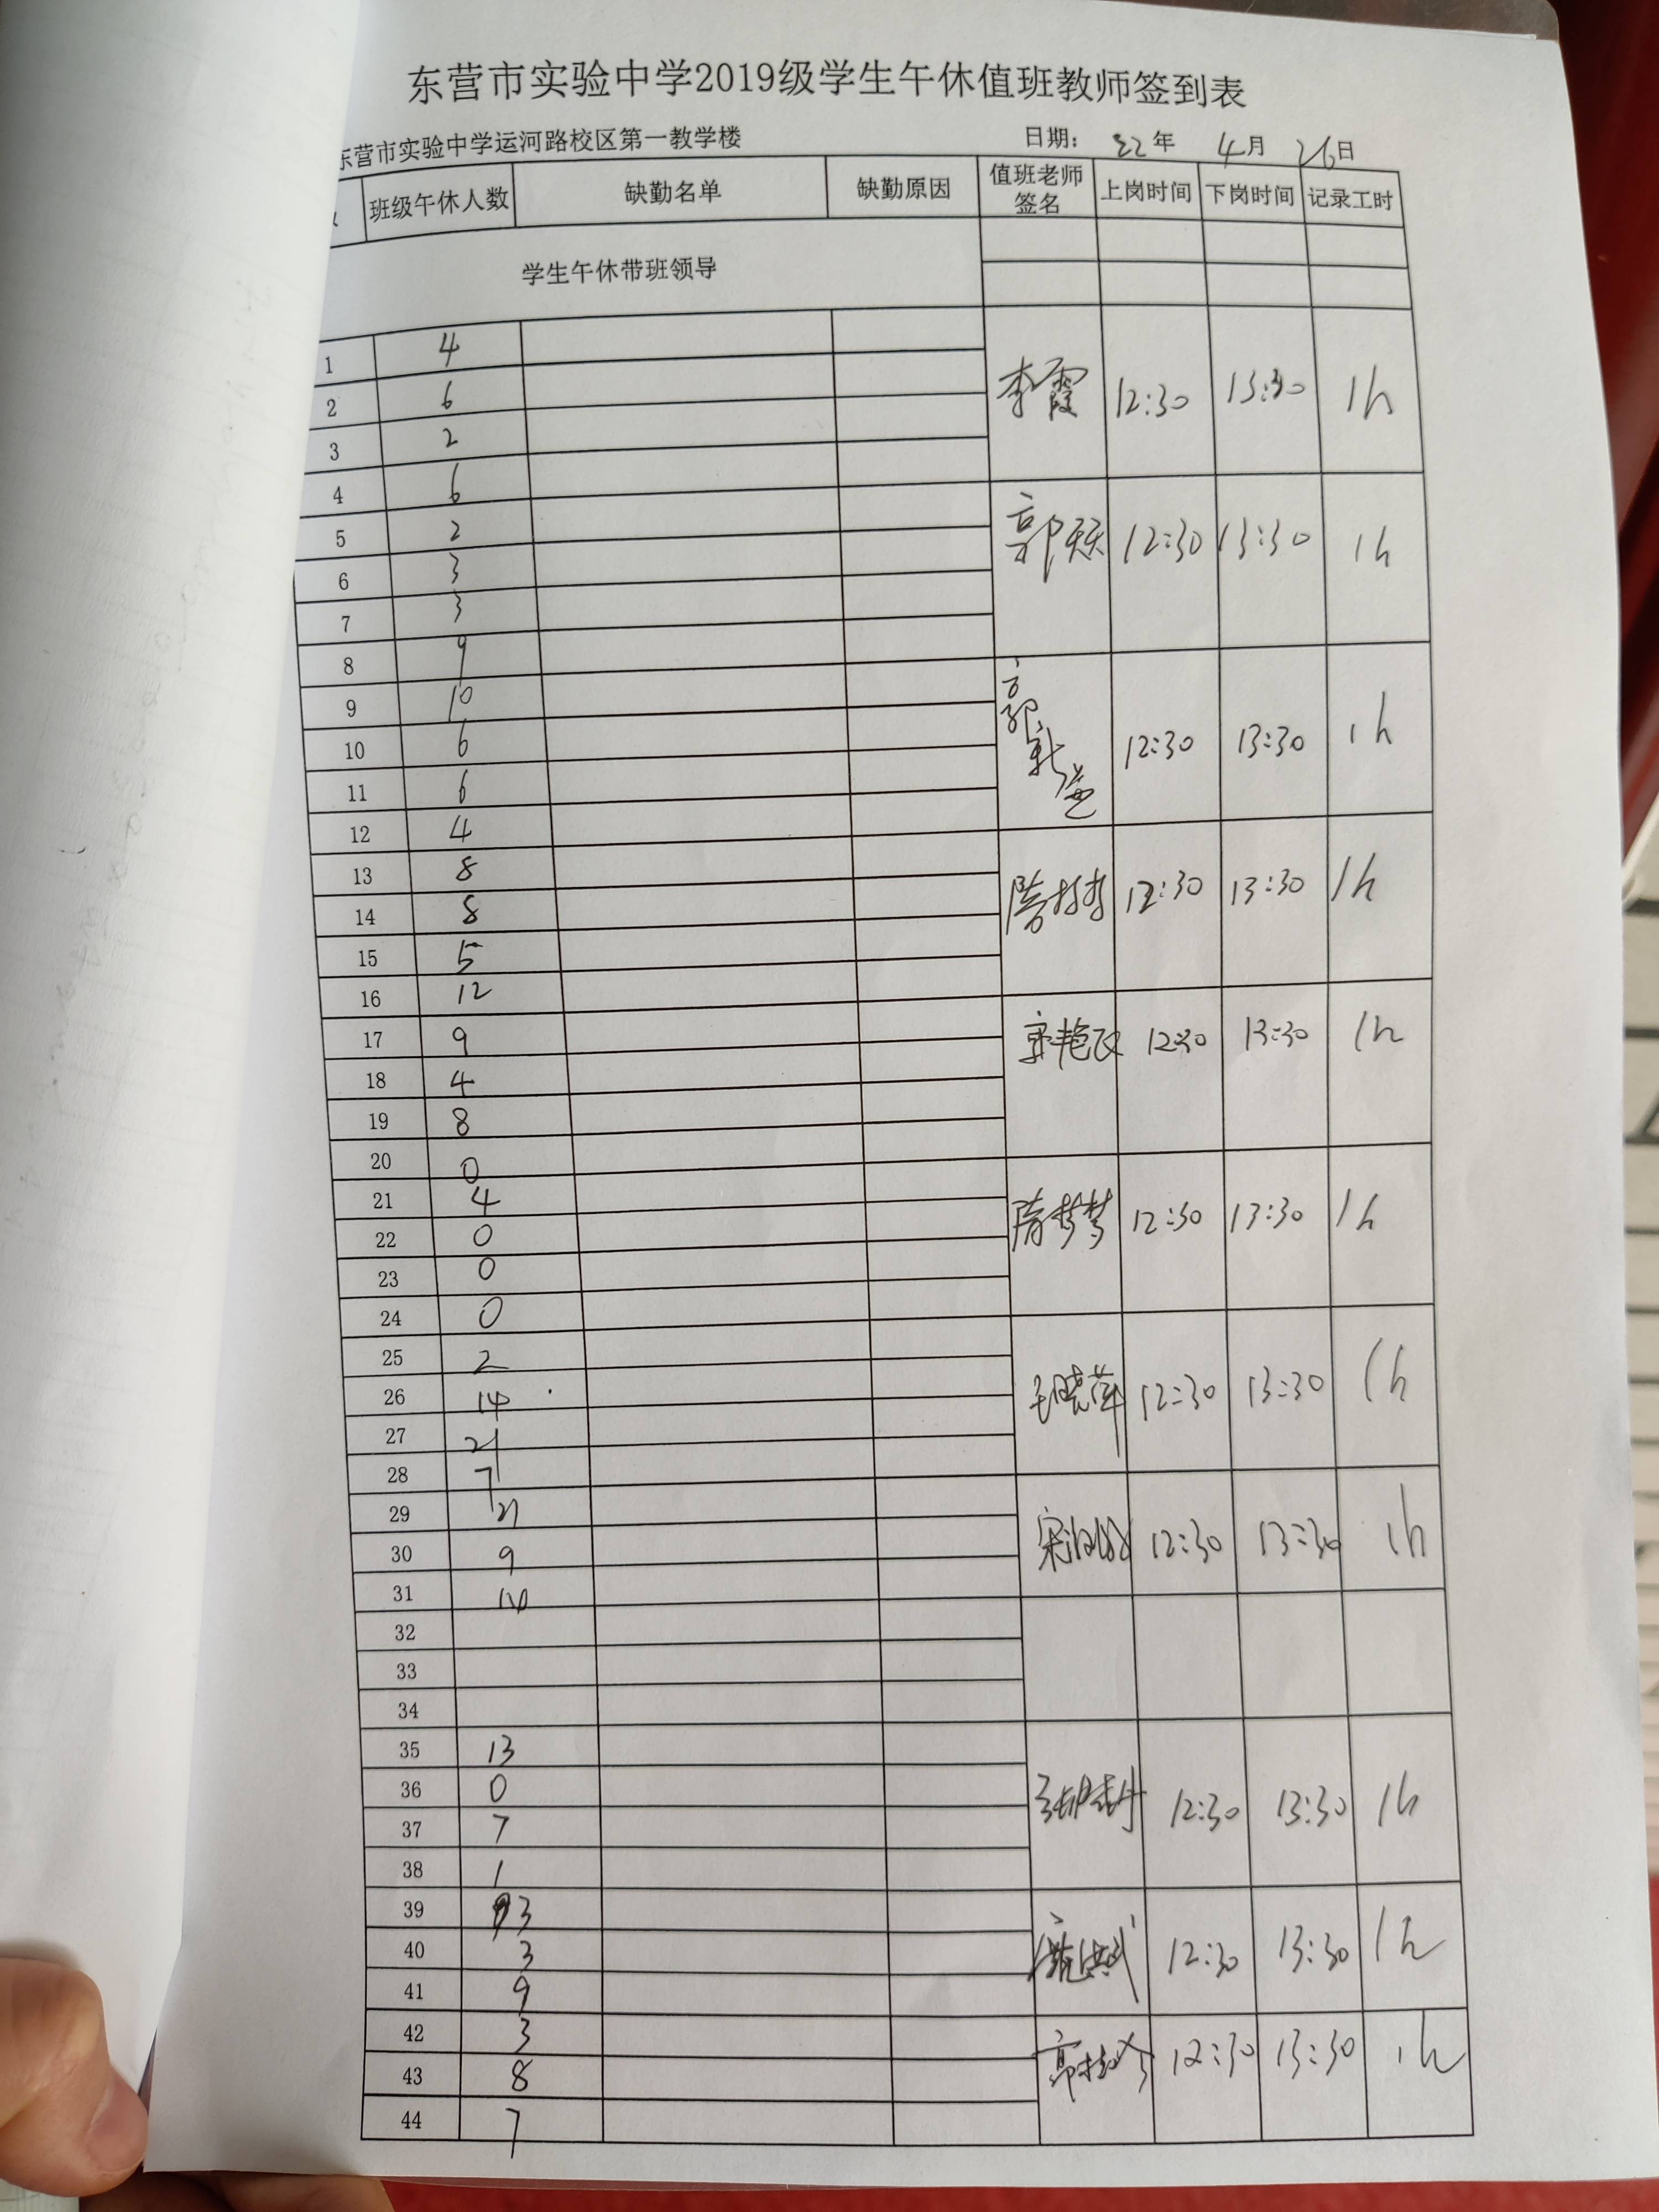 东营市实验中学2019级学生午休值班教师签到表
东营市实验中学运河路校区第一教学楼 日期: 22年 4月 26日
班级午休人数 缺勤名单 缺勤原因 值班老师签名 上岗时间 下岗时间 记录工时
学生午休带班领导
1 4
2 6 李霞 12:30 13:30 1h
3 2
4 6
5 2 郭天天 12:30 13:30 1h
6 3
7 3
8 9
9 10 郭 12:30 13:30 1h
10 6
11 6
12 4
13 8
14 8 隋 12:30 13:30 1h
15 5
16 12
17 9 宋艳改 12:30 13:30 1h
18 4
19 8
20 0
21 4 隋梦梦 12:30 13:30 1h
22 0
23 0
24 0
25 2
26 14 毛晓萍 12:30 13:30 1h
27 21
28 7
29 21
30 9 宋 12:30 13:30 1h
31 10
32
33
34
35 13
36 0
37 7 12:30 13:30 1h
38 1
39 3
40 3 12:30 13:30 1h
41 9
42 3
43 8 12:30 13:30 1h
44 7